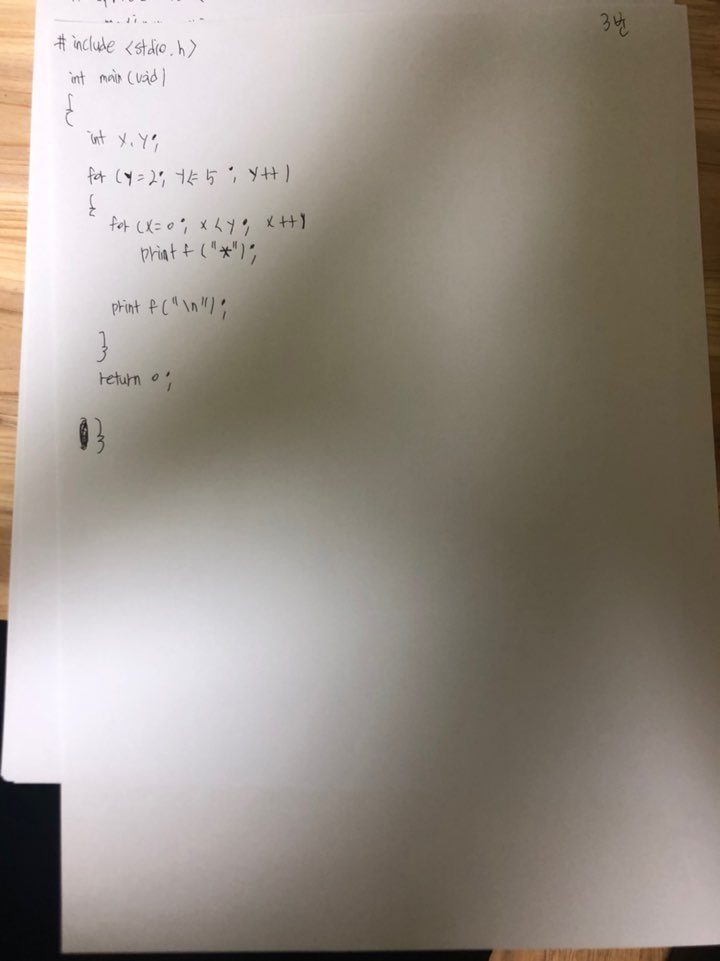 3번
# include <stdio.h>
int main(void)
{
int x,y;
for (y=2; y<=5; y++)
{
for (x=0; x<y; x++)
printf("*");
printf("\n");
}
return 0;
}